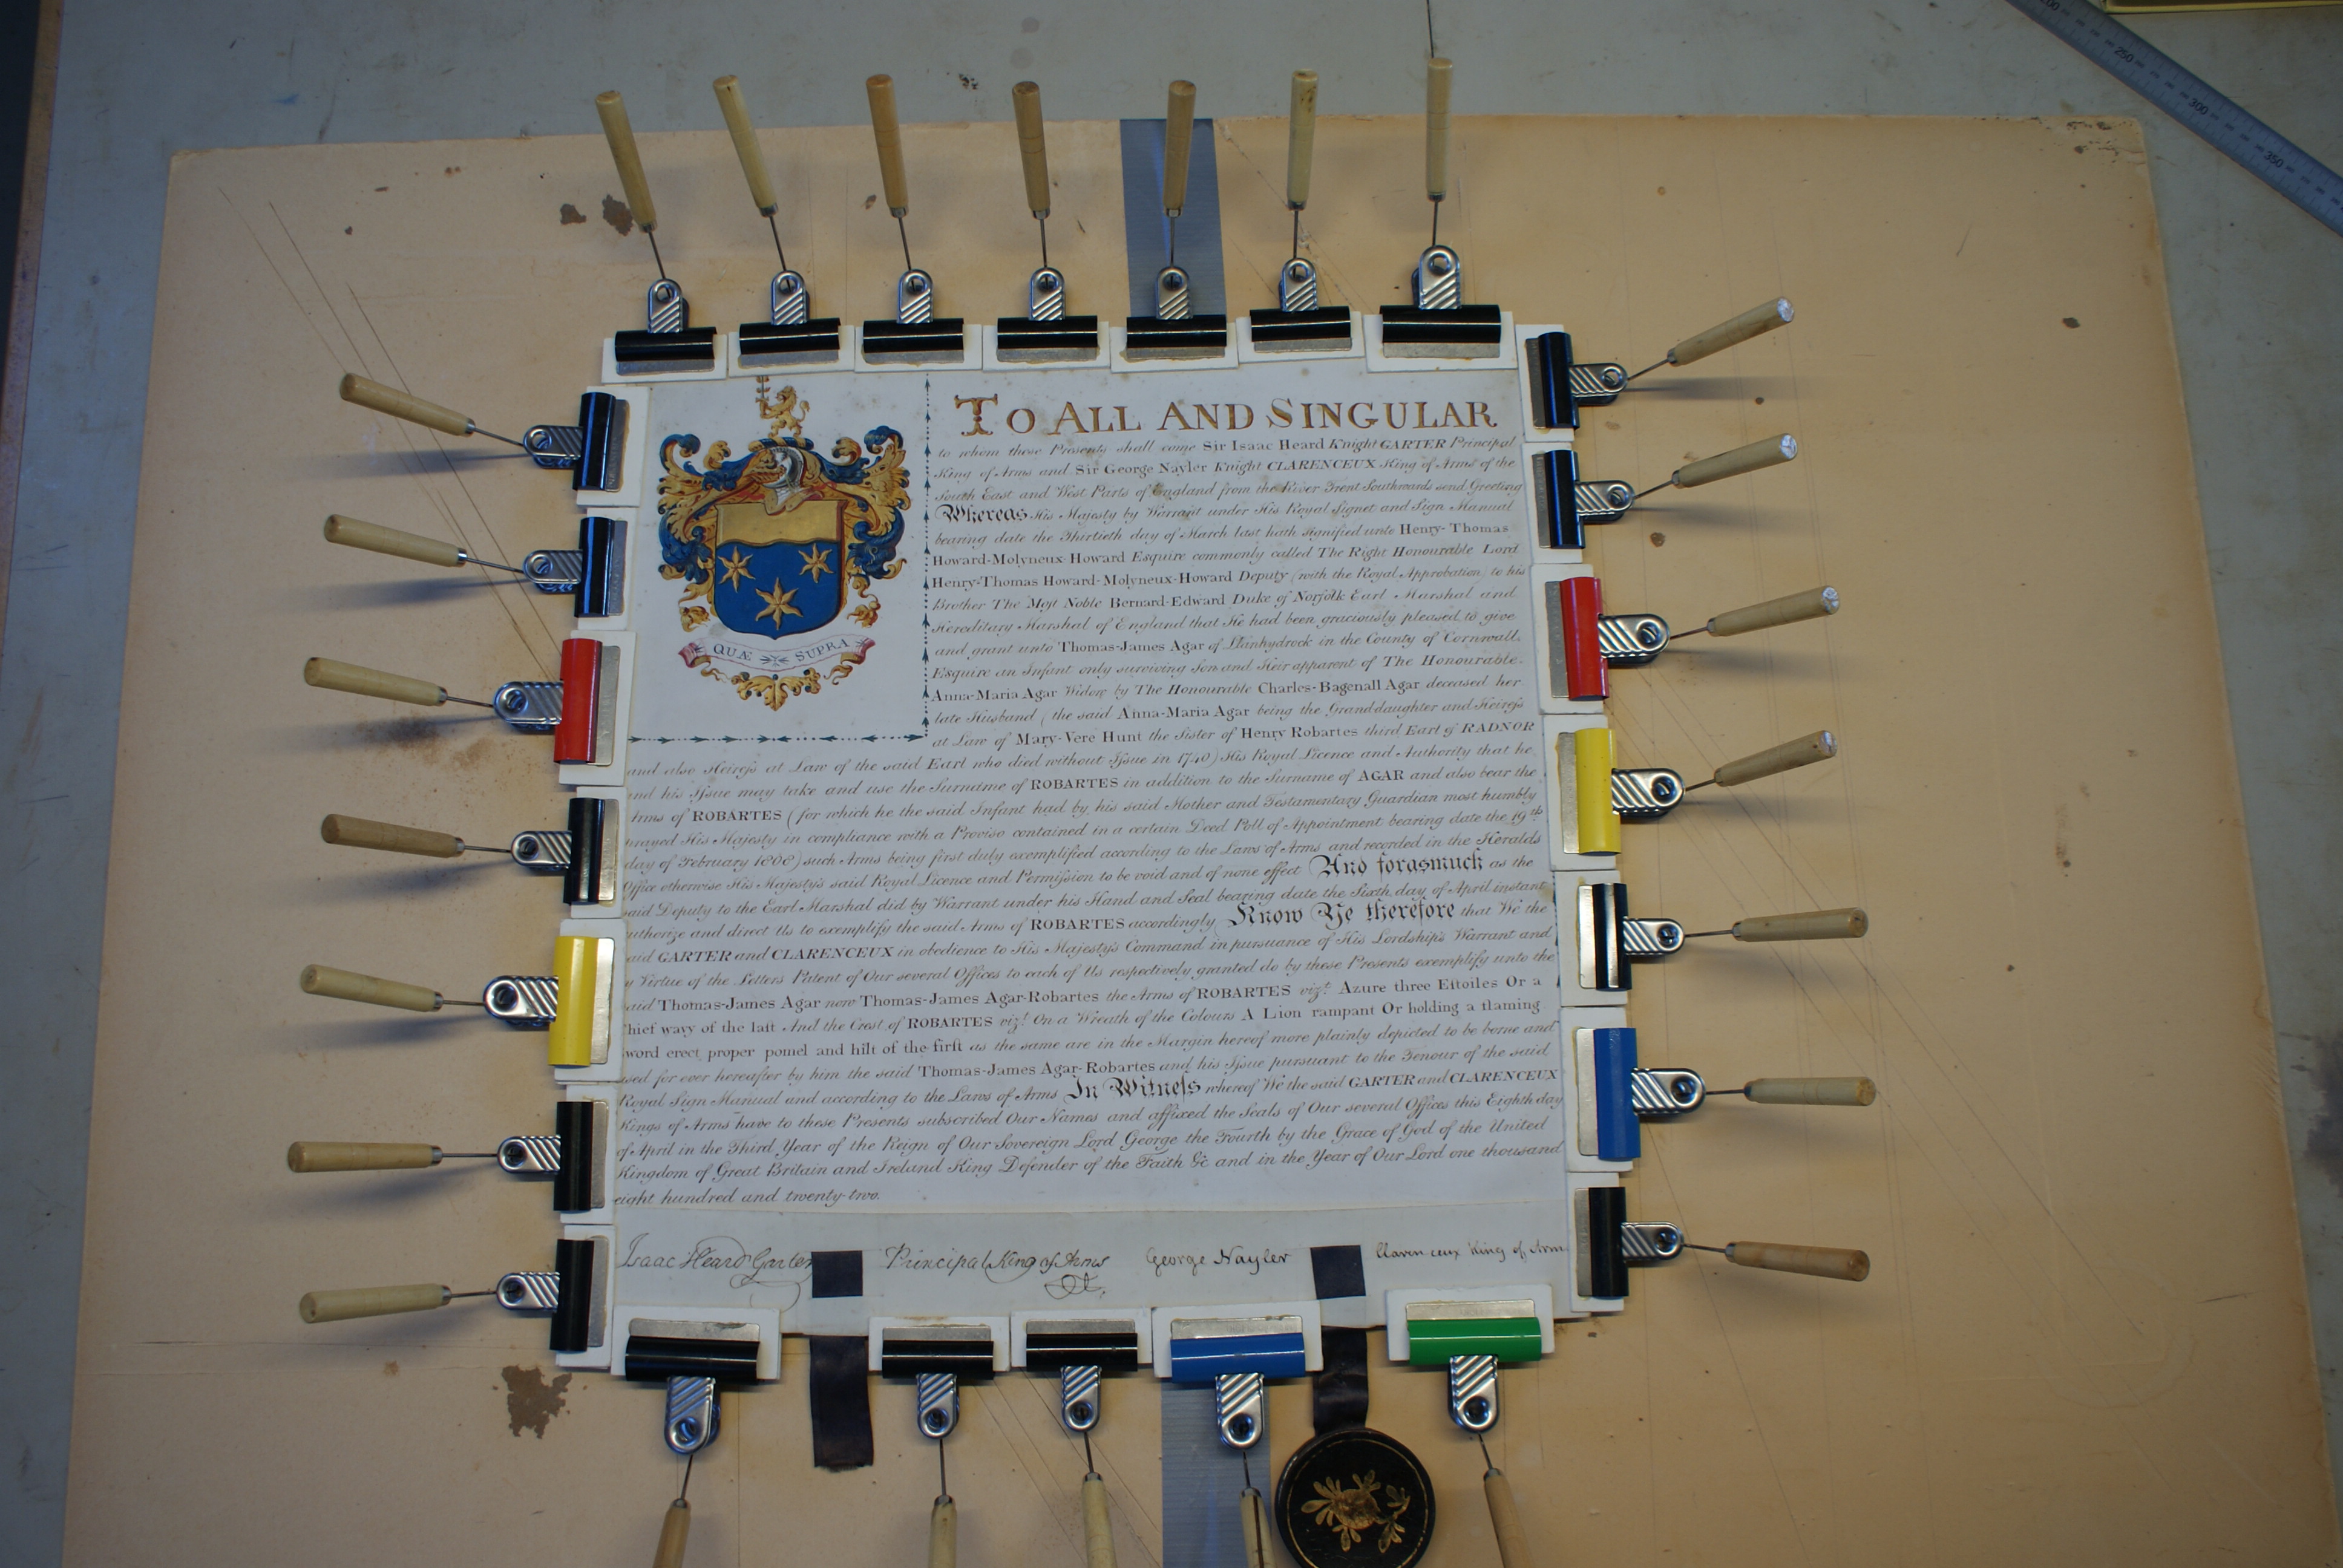 TO ALL AND SINGULAR
to whom these Presents shall come Sir Isaac Heard Knight GARTER Principal
King of Arms and Sir George Nayler Knight CLARENCEUX King of Arms of the
South East and West Parts of England from the River Trent Southwards send Greeting
Whereas His Majesty by Warrant under His Royal Signet and Sign Manual
bearing date the Thirtieth day of March last hath signified unto Henry-Thomas
Howard-Molyneux-Howard Esquire commonly called The Right Honourable Lord
Henry-Thomas Howard-Molyneux-Howard Deputy (with the Royal Approbation) to his
Brother The Most Noble Bernard-Edward Duke of Norfolk Earl Marshal and
Hereditary Marshal of England that He had been graciously pleased to give
and grant unto Thomas-James Agar of Llanhydrock in the County of Cornwall,
Esquire an Infant only surviving Son and Heir apparent of The Honourable
Anna-Maria Agar Widow by The Honourable Charles-Bagenall Agar deceased her
late Husband (the said Anna-Maria Agar being the Granddaughter and Heiress
at Law of Mary-Vere Hunt the Sister of Henry Robartes third Earl of RADNOR
QUÆ SUPRA
and also Heiress at Law of the said Earl who died without Issue in 1740) His Royal Licence and Authority that he
and his Issue may take and use the Surname of ROBARTES in addition to the Surname of AGAR and also bear the
Arms of ROBARTES (for which he the said Infant had by his said Mother and Testamentary Guardian most humbly
prayed His Majesty in compliance with a Proviso contained in a certain Deed Poll of Appointment bearing date the 19th
day of February 1808) such Arms being first duly exemplified according to the Laws of Arms and recorded in the Heralds
Office otherwise His Majesty's said Royal Licence and Permission to be void and of none effect And forasmuch as the
said Deputy to the Earl Marshal did by Warrant under his Hand and Seal bearing date the Sixth day of April instant
uthorize and direct Us to exemplify the said Arms of ROBARTES accordingly Know Ye therefore that We the
aid GARTER and CLARENCEUX in obedience to His Majesty's Command in pursuance of His Lordship's Warrant and
y Virtue of the Letters Patent of Our several Offices to each of Us respectively granted do by these Presents exemplify unto the
said Thomas-James Agar now Thomas-James Agar-Robartes the Arms of ROBARTES vizt. Azure three Estoiles Or a
hief wavy of the last And the Crest of ROBARTES vizt. On a Wreath of the Colours A Lion rampant Or holding a flaming
word erect proper pomel and hilt of the first as the same are in the Margin hereof more plainly depicted to be borne and
sed for ever hereafter by him the said Thomas-James Agar-Robartes and his Issue pursuant to the Tenour of the said
Royal Sign Manual and according to the Laws of Arms In Witness whereof We the said GARTER and CLARENCEUX
Kings of Arms have to these Presents subscribed Our Names and affixed the Seals of Our several Offices this Eighth day
of April in the Third Year of the Reign of Our Sovereign Lord George the Fourth by the Grace of God of the United
Kingdom of Great Britain and Ireland King Defender of the Faith &c and in the Year of Our Lord one thousand
eight hundred and twenty-two.
Isaac Heard Garter Principal King of Arms George Nayler Clarenceux King of Arms
200 250 300 350